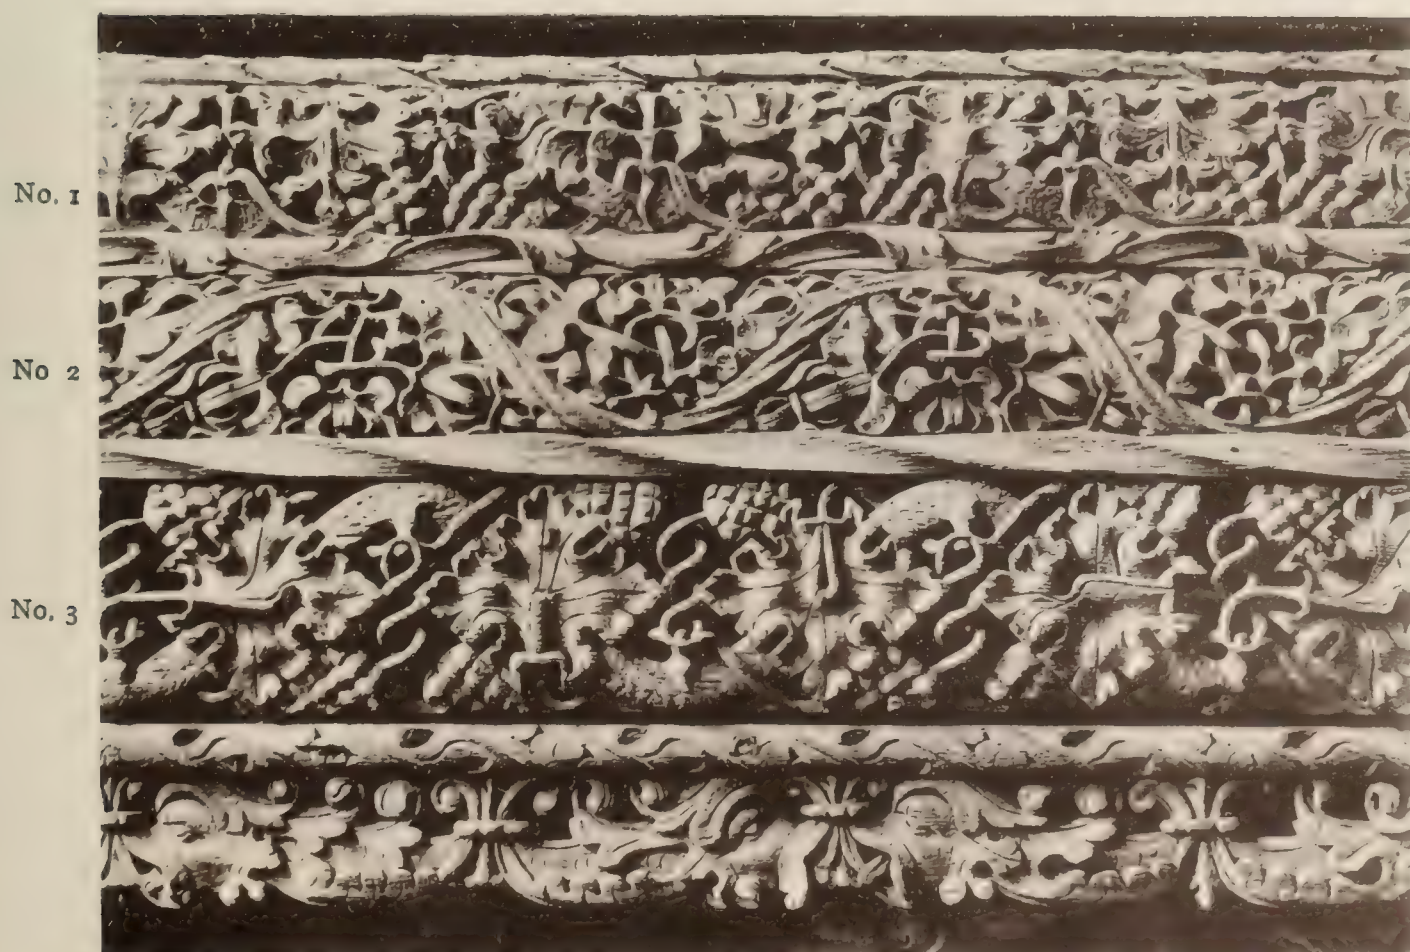 No. 1
No 2
No. 3